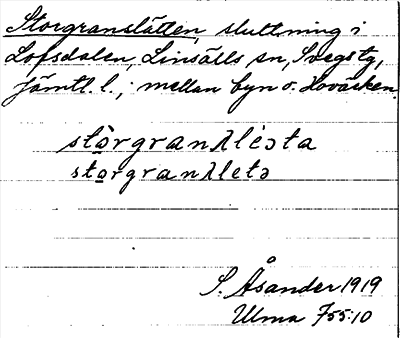 Storgranslätten, sluttning i
Lofsdalen, Linsälls sn, Svegs tg,
Jämtl. l.; mellan byn o. Hovärken.
stòrgranʎléɔta
storgranʎletɔ
S. Åsander 1919
Ulma 755:10